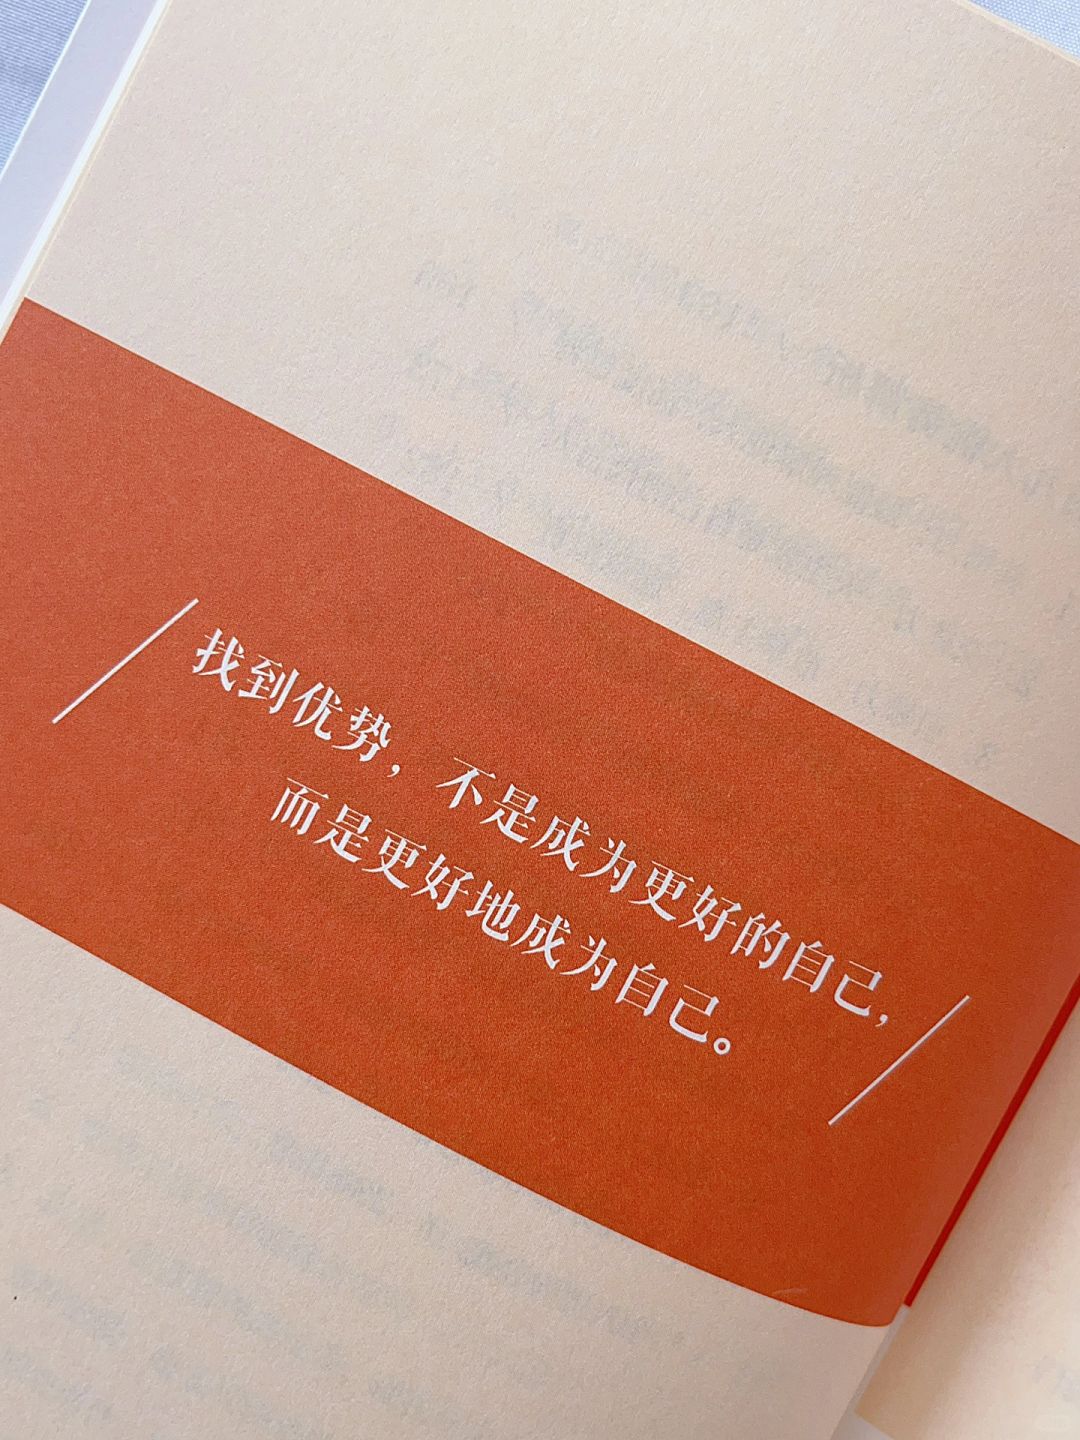 找到优势，不是成为更好的自己，
而是更好地成为自己。